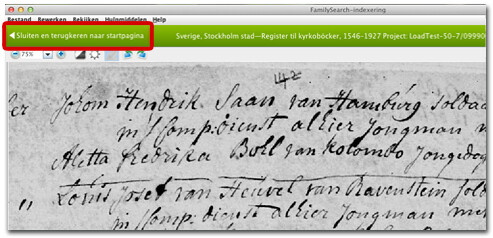 FamilySearch-indexering
Bestand Bewerken Bekijken Hulpmiddelen Help
Sluiten en terugkeren naar startpagina
Sverige, Stockholm stad—Register til kyrkoböcker, 1546-1927 Project: LoadTest-50-7/099900
75%
142
Johom Hendrik Saan van Hamburg solda
in's Comp: dienst alhier Jongman
Aletta Fredrika Boll van Kolombo Jongedog
„ Louis Josef van Heuvel van Ravenstein sol
in's Comp: dienst alhier Jongman met